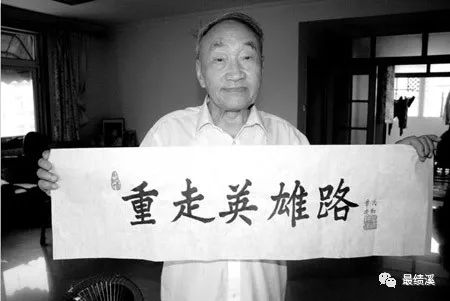 重走英雄路
最绩溪